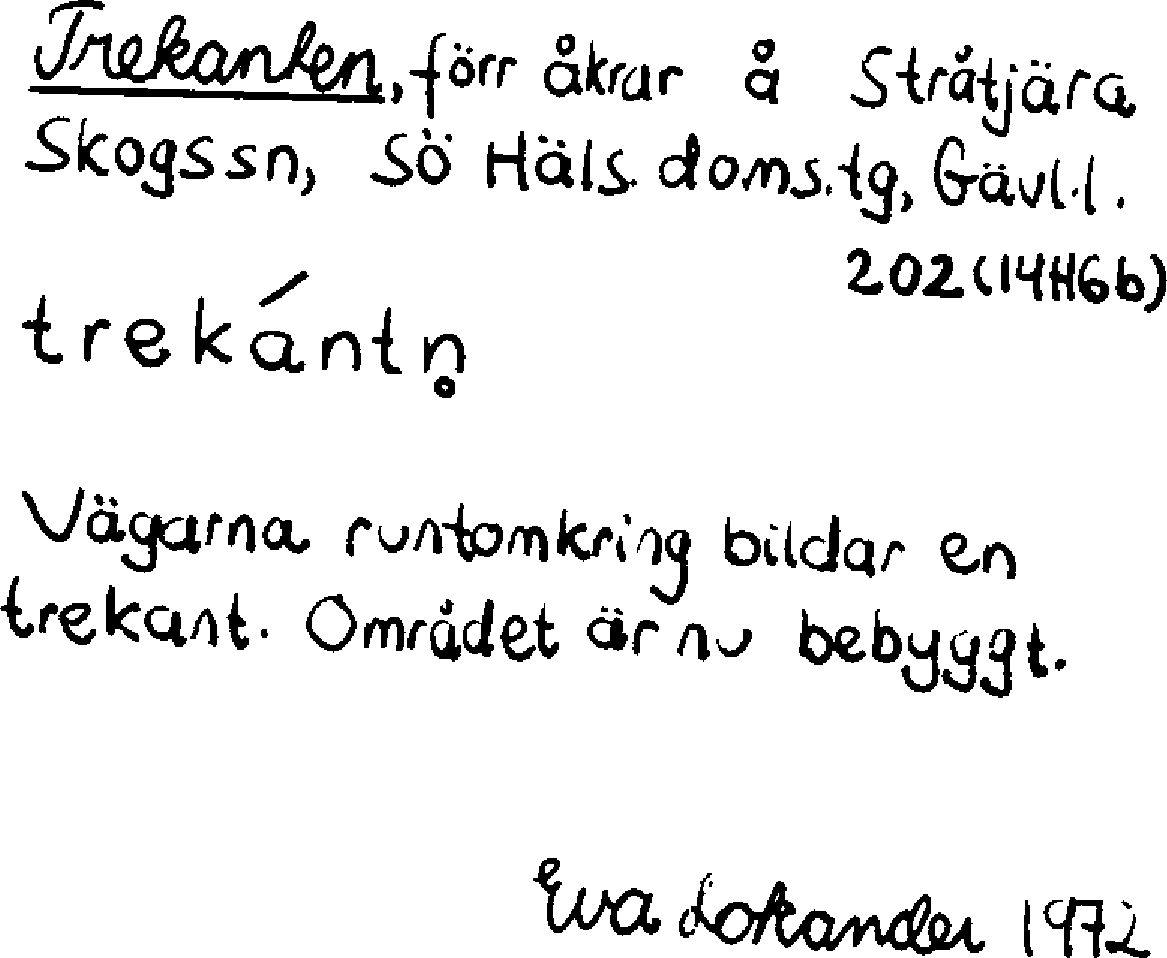 Trekanten, förr åkrar å Stråtjära
Skogs sn, Sö Häls. doms.tg, Gävl.l.
202 (14H6b)
trekántn̥
Vägarna runtomkring bildar en
trekant. Området är nu bebyggt.
Eva Lokander 1972